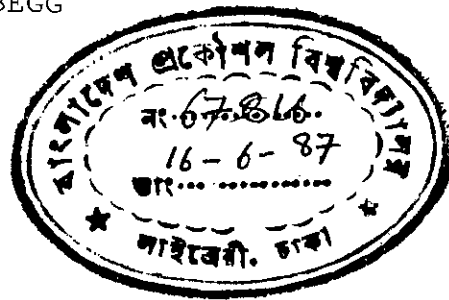 BEGG
বাংলাদেশ প্রকৌশল বিশ্ববিদ্যালয়
নং. 67816.
16-6-87
তাং..............
লাইব্রেরী. ঢাকা